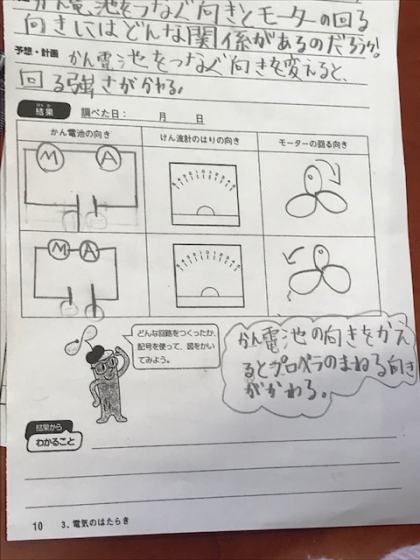 かん電池をつなぐ向きとモーターの回る
向きにはどんな関係があるのだろうか。
予想・計画 かん電池をつなぐ向きを変えると、
回る強さがかわる。
結果 調べた日： 月 日
かん電池の向き けん流計のはりの向き モーターの回る向き
M A
M A
どんな回路をつくったか、
記号を使って、図をかい
てみよう。
かん電池の向きをかえ
るとプロペラのまわる向き
がかわる。
結果から
わかること
10 3. 電気のはたらき